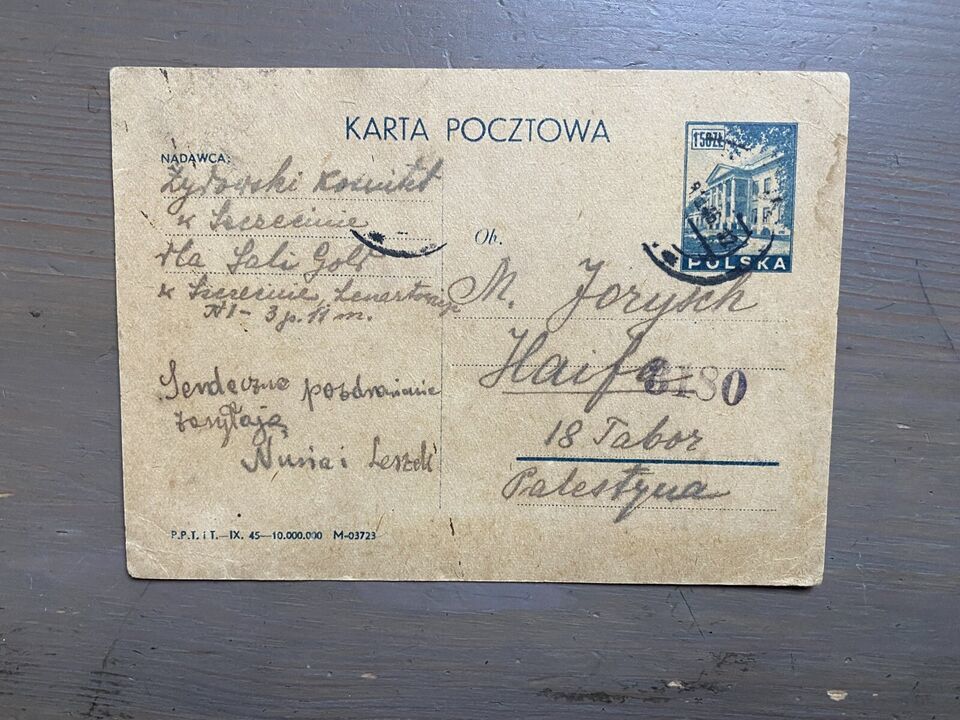 KARTA POCZTOWA
150 ZŁ
POLSKA
NADAWCA:
Żydowski Komitet
w Szczecinie
dla Sali Gold
w Szczecinie
N 1 - 3 p. 11 m.
Serdeczne pozdrowienie
zasyłają
Nusia i Leszek
P.P.T. i T.—IX. 45—10.000.000 M-03723
Ob.
M. Jorysch
Haifa
6180
18 Tabor
Palestyna